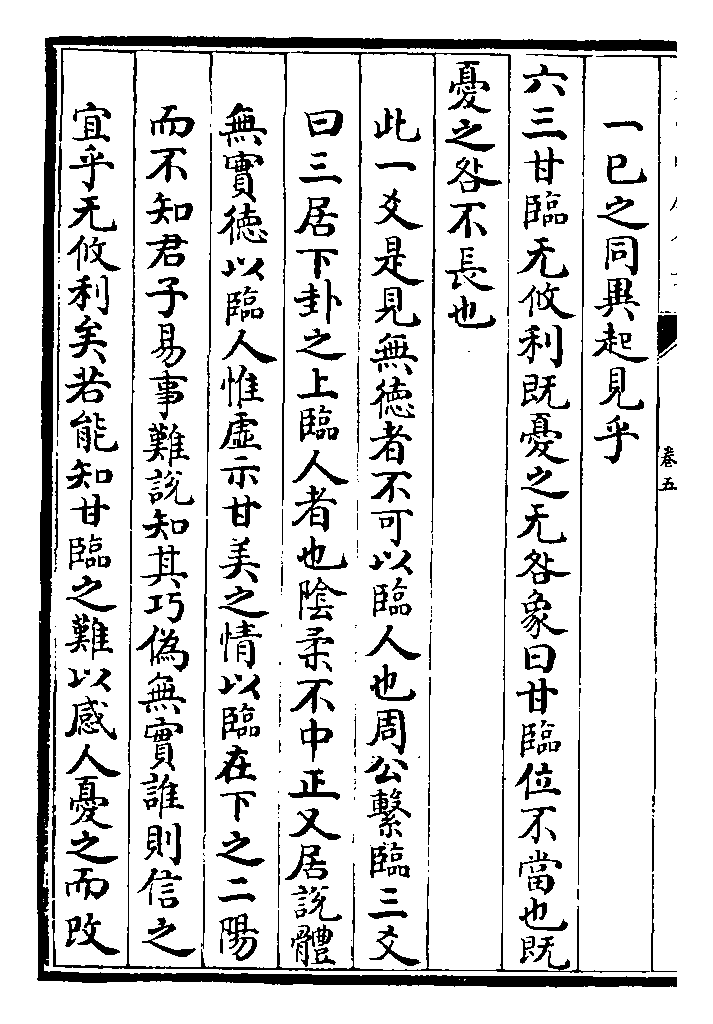 卷五
一已之同異起見乎
六三甘臨无攸利既憂之无咎象曰甘臨位不當也既
憂之咎不長也
此一爻是見無徳者不可以臨人也周公繫臨三爻
曰三居下卦之上臨人者也陰柔不中正又居說體
無實徳以臨人惟虛示甘美之情以臨在下之二陽
而不知君子易事難說知其巧偽無實誰則信之
宜乎无攸利矣若能知甘臨之難以感人憂之而改